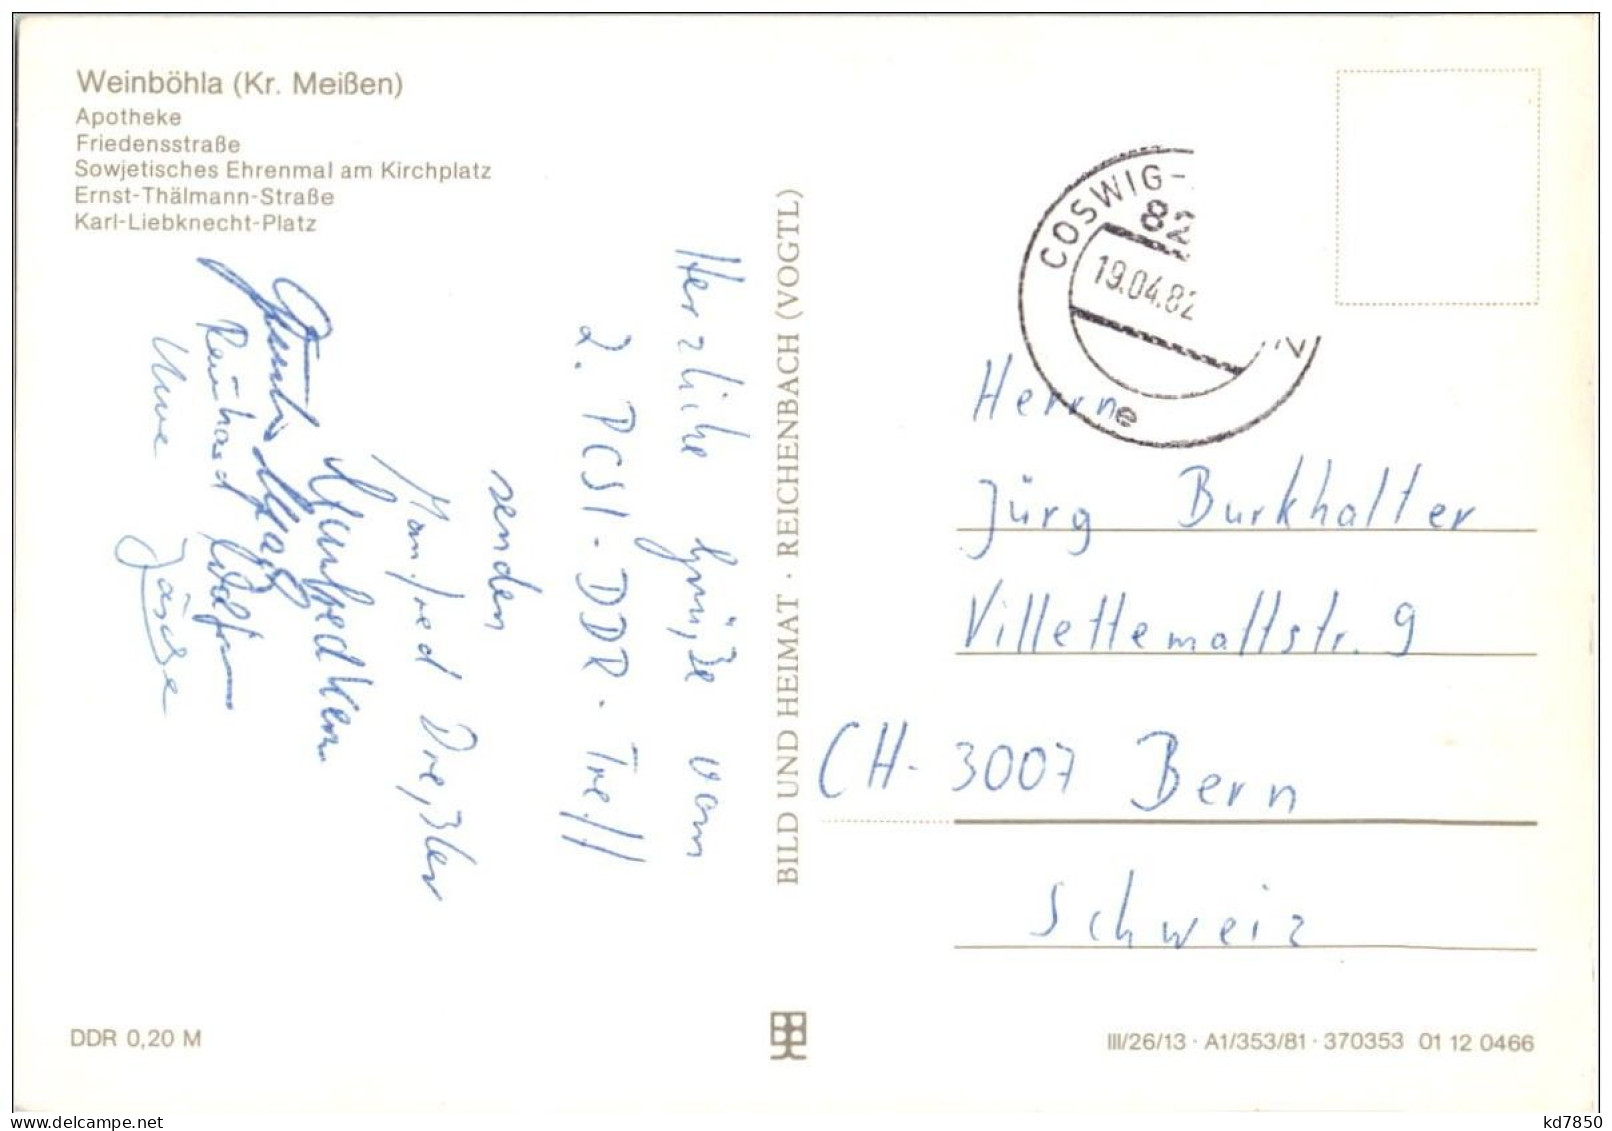 Weinböhla (Kr. Meißen)
Apotheke
Friedensstraße
Sowjetisches Ehrenmal am Kirchplatz
Ernst-Thälmann-Straße
Karl-Liebknecht-Platz
Herzliche Grüße vom
2. PCSI-DDR-Treff
senden
Manfred Dreßler
Reinhard
Uwe Jäschke
BILD UND HEIMAT · REICHENBACH (VOGTL)
COSWIG-
82
19.04.82
e
Herrn
Jürg Burkhalter
Villettemattstr. 9
CH-3007 Bern
Schweiz
DDR 0,20 M
III/26/13 · A1/353/81 · 370353 01 12 0466
delcampe.net
kd7850